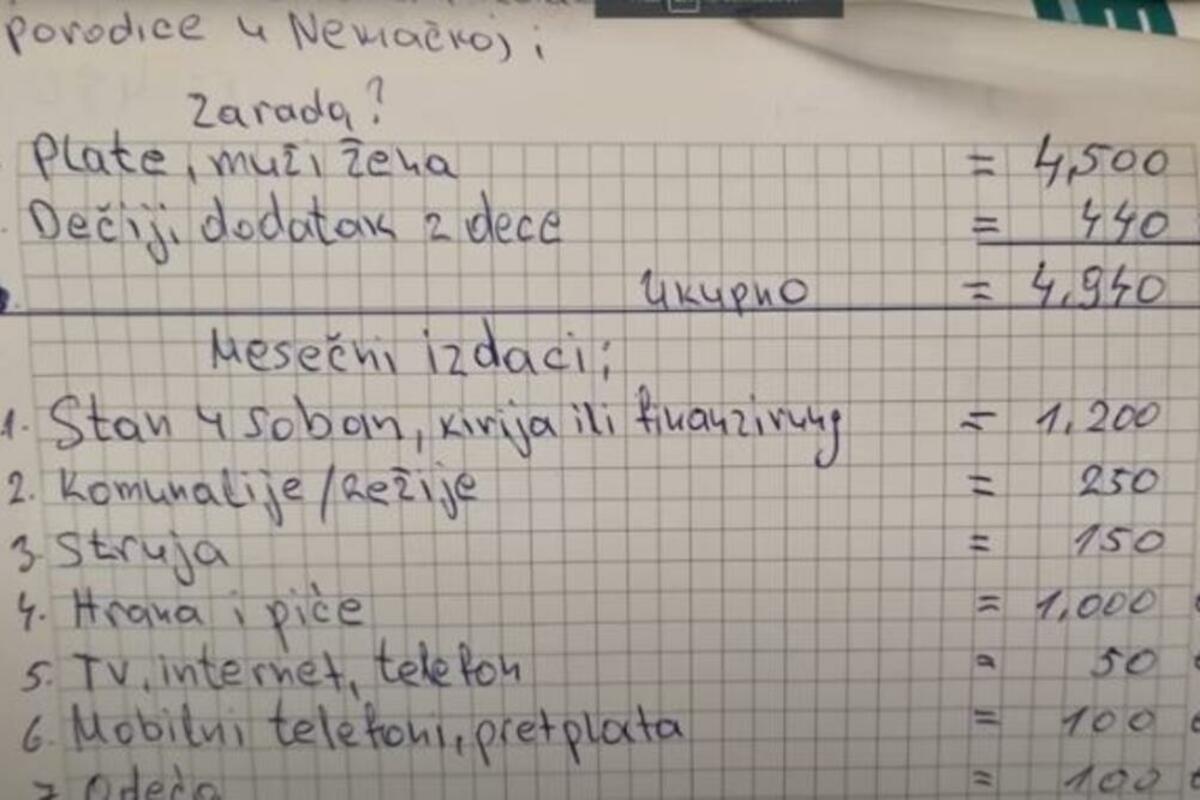 porodice u Nemačkoj;
Zarada?
Plate, muž i žena = 4,500
Dečiji dodatak 2 dece = 440
Ukupno = 4.940
Mesečni izdaci;
1. Stan 4 soban, kirija ili finanzirung = 1.200
2. Komunalije/Režije = 250
3. Struja = 150
4. Hrana i piće = 1.000
5. TV, internet, telefon = 50
6. Mobilni telefoni, pretplata = 100
7. Odeća = 100